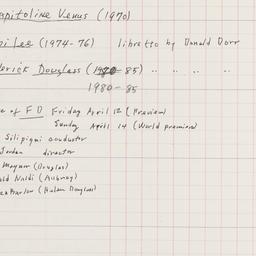 apitoline Venus (1970)
i Lee (1974-76) libretto by Donald Dorr
erick Douglass (1980-85) " " " "
1980-85
e of FD Friday April 12 (Preview)
Sunday April 14 (World premiere)
Silipigni conductor
Jordan director
Maynor (Douglas)
ld Naldi (Auknay)
(Helen Douglass)